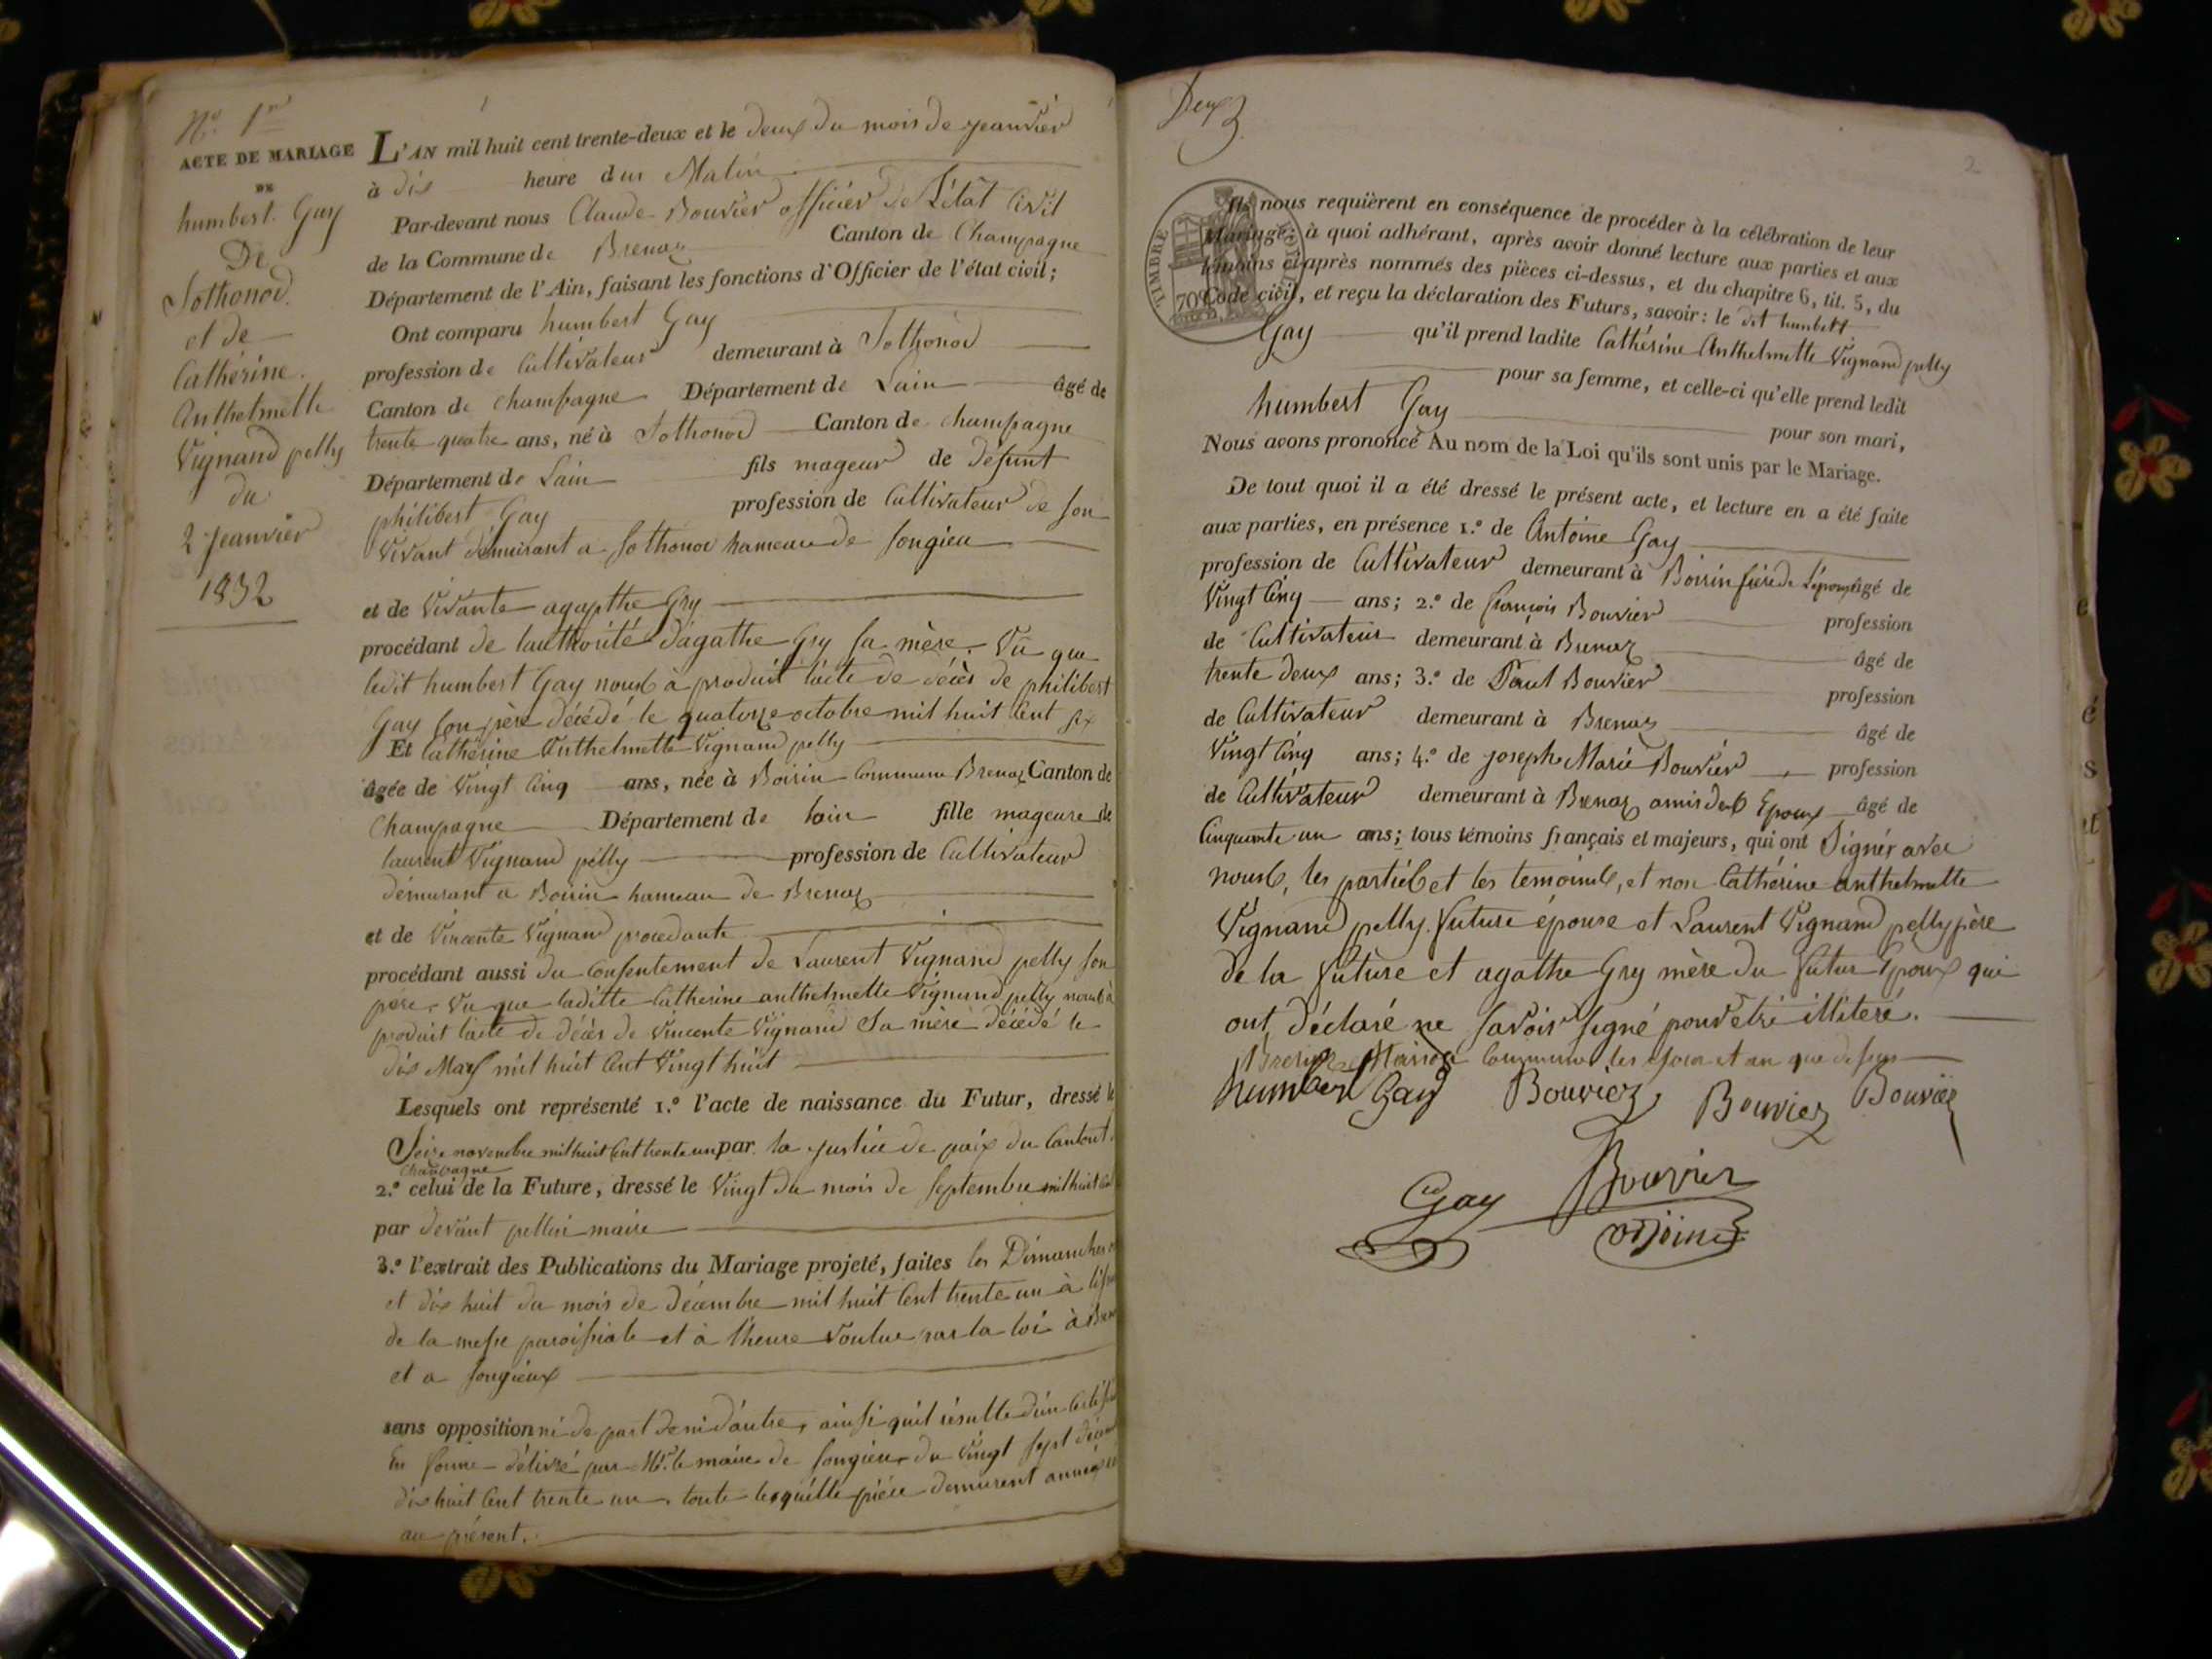 N.° 1er
ACTE DE MARIAGE
DE
humbert Gay
De
Sothonod.
et de
Cathérine.
Anthelmette
Vignand pelly
du
2 jeanvier
1832
L'AN mil huit cent trente-deux et le deux du mois de jeanvier
à dix heure du Matin
Par-devant nous Claude Bouvier officier de L'état Civil
de la Commune de Brenaz Canton de Champagne
Département de l'Ain, faisant les fonctions d'Officier de l'état civil;
Ont comparu humbert Gay
profession de Cultivateur demeurant à Sothonod
Canton de Champagne Département de Lain âgé de
trente quatre ans, né à Sothonod Canton de Champagne
Département de Lain fils mageur de defunt
philibert Gay profession de Cultivateur de son
Vivant démeurant a Sothonod hameau de Songieu
et de Vivante agapthe Gry
procédant de lauthorité d'agathe Gry sa mère. Vu que
ledit humbert Gay nous à produit l'acte de décès de philibert
Gay son père décédé le quatorze octobre mil huit Cent six
Et Cathérine Anthelmette Vignand pelly
âgée de Vingt Cinq ans, née à Boirin Commune Brenaz Canton de
Champagne Département de Lain fille mageure de
laurent Vignand pelly profession de Cultivateur
démurant a Boirin hameau de Brenaz
et de Vincente Vignand procedante
procédant aussi du Consentement de Laurent Vignand pelly son
père. Vu que laditte Catherine anthelmette Vignand pelly nous à
produit l'acte de décès de Vincente Vignand Sa mère décédé le
dix Mars mil huit Cent Vingt huit
Lesquels ont représenté 1.° l'acte de naissance du Futur, dressé le
Seize novembre mil huit Cent trente un par la justice de paix du Canton
Champagne
2.° celui de la Future, dressé le Vingt du mois de septembre mil huit
par devant pellin maire
3.° l'extrait des Publications du Mariage projeté, faites les Dimanches
et dix huit du mois de décembre mil huit Cent trente un à
de la messe paroissiale et à l'heure voulue par la loi à
et a songieux
sans opposition ni de part de ni d'autre, ainsi quil résulte d'un
En forme délivré par Mr. le maire de songieu du Vingt sept
dix huit Cent trente un. toute lesquelle pièce demeurent
au présent.
Deux
2
TIMBRE ROYAL
70 C
Ils nous requièrent en conséquence de procéder à la célébration de leur
Mariage; à quoi adhérant, après avoir donné lecture aux parties et aux
témoins ci-après nommés des pièces ci-dessus, et du chapitre 6, tit. 5, du
Code civil, et reçu la déclaration des Futurs, savoir: le dit humbert
Gay qu'il prend ladite Cathérine Anthelmette Vignand pelly
pour sa femme, et celle-ci qu'elle prend ledit
humbert Gay pour son mari,
Nous avons prononcé Au nom de la Loi qu'ils sont unis par le Mariage.
De tout quoi il a été dressé le présent acte, et lecture en a été faite
aux parties, en présence 1.° de Antoine Gay
profession de Cultivateur demeurant à Boirin frère de L'époux âgé de
Vingt Cinq ans; 2.° de françois Bouvier profession
de Cultivateur demeurant à Brenaz âgé de
trente deux ans; 3.° de Paul Bouvier profession
de Cultivateur demeurant à Brenaz âgé de
Vingt Cinq ans; 4.° de joseph Marie Bouvier profession
de Cultivateur demeurant à Brenaz amis des Epoux âgé de
Cinquante un ans; tous témoins français et majeurs, qui ont Signér avec
nous, les partiés et les temoins, et non Cathérine anthelmette
Vignand pelly. future épouse et Laurent Vignand pelly père
de la future et agathe Gry mère du futur Epoux qui
ont déclaré ne savoir signé pour être illiteré.
Brenaz Maison Commune les jour et an que dessus
humbert Gay Bouvier Bouvier Bouvier
Gay Bouvier
adjoint